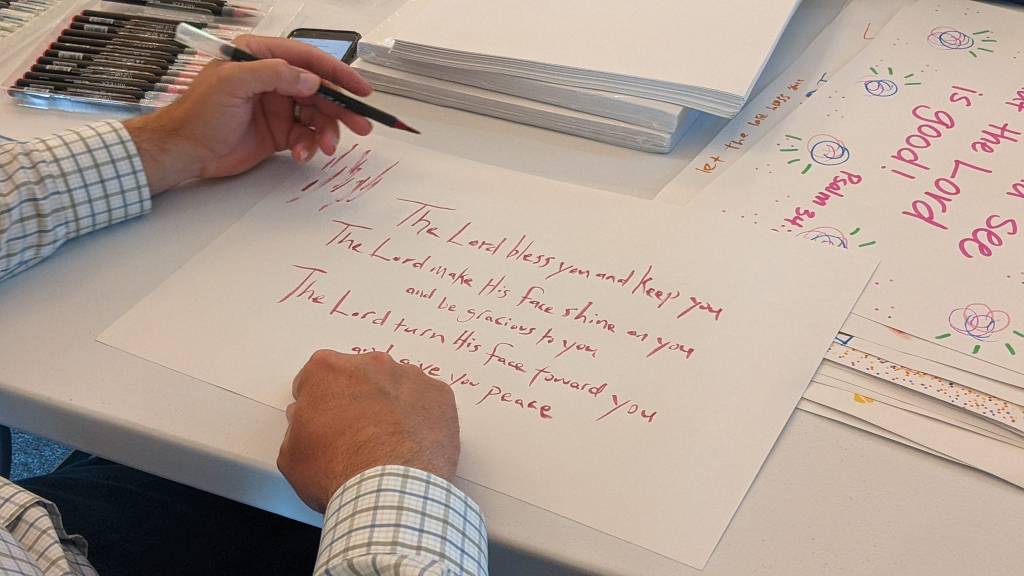 The Lord bless you and keep you
The Lord make His face shine on you
and be gracious to you
The Lord turn His face toward you
and give you peace
let the
the Lord
is
good!
see
Psalm 34